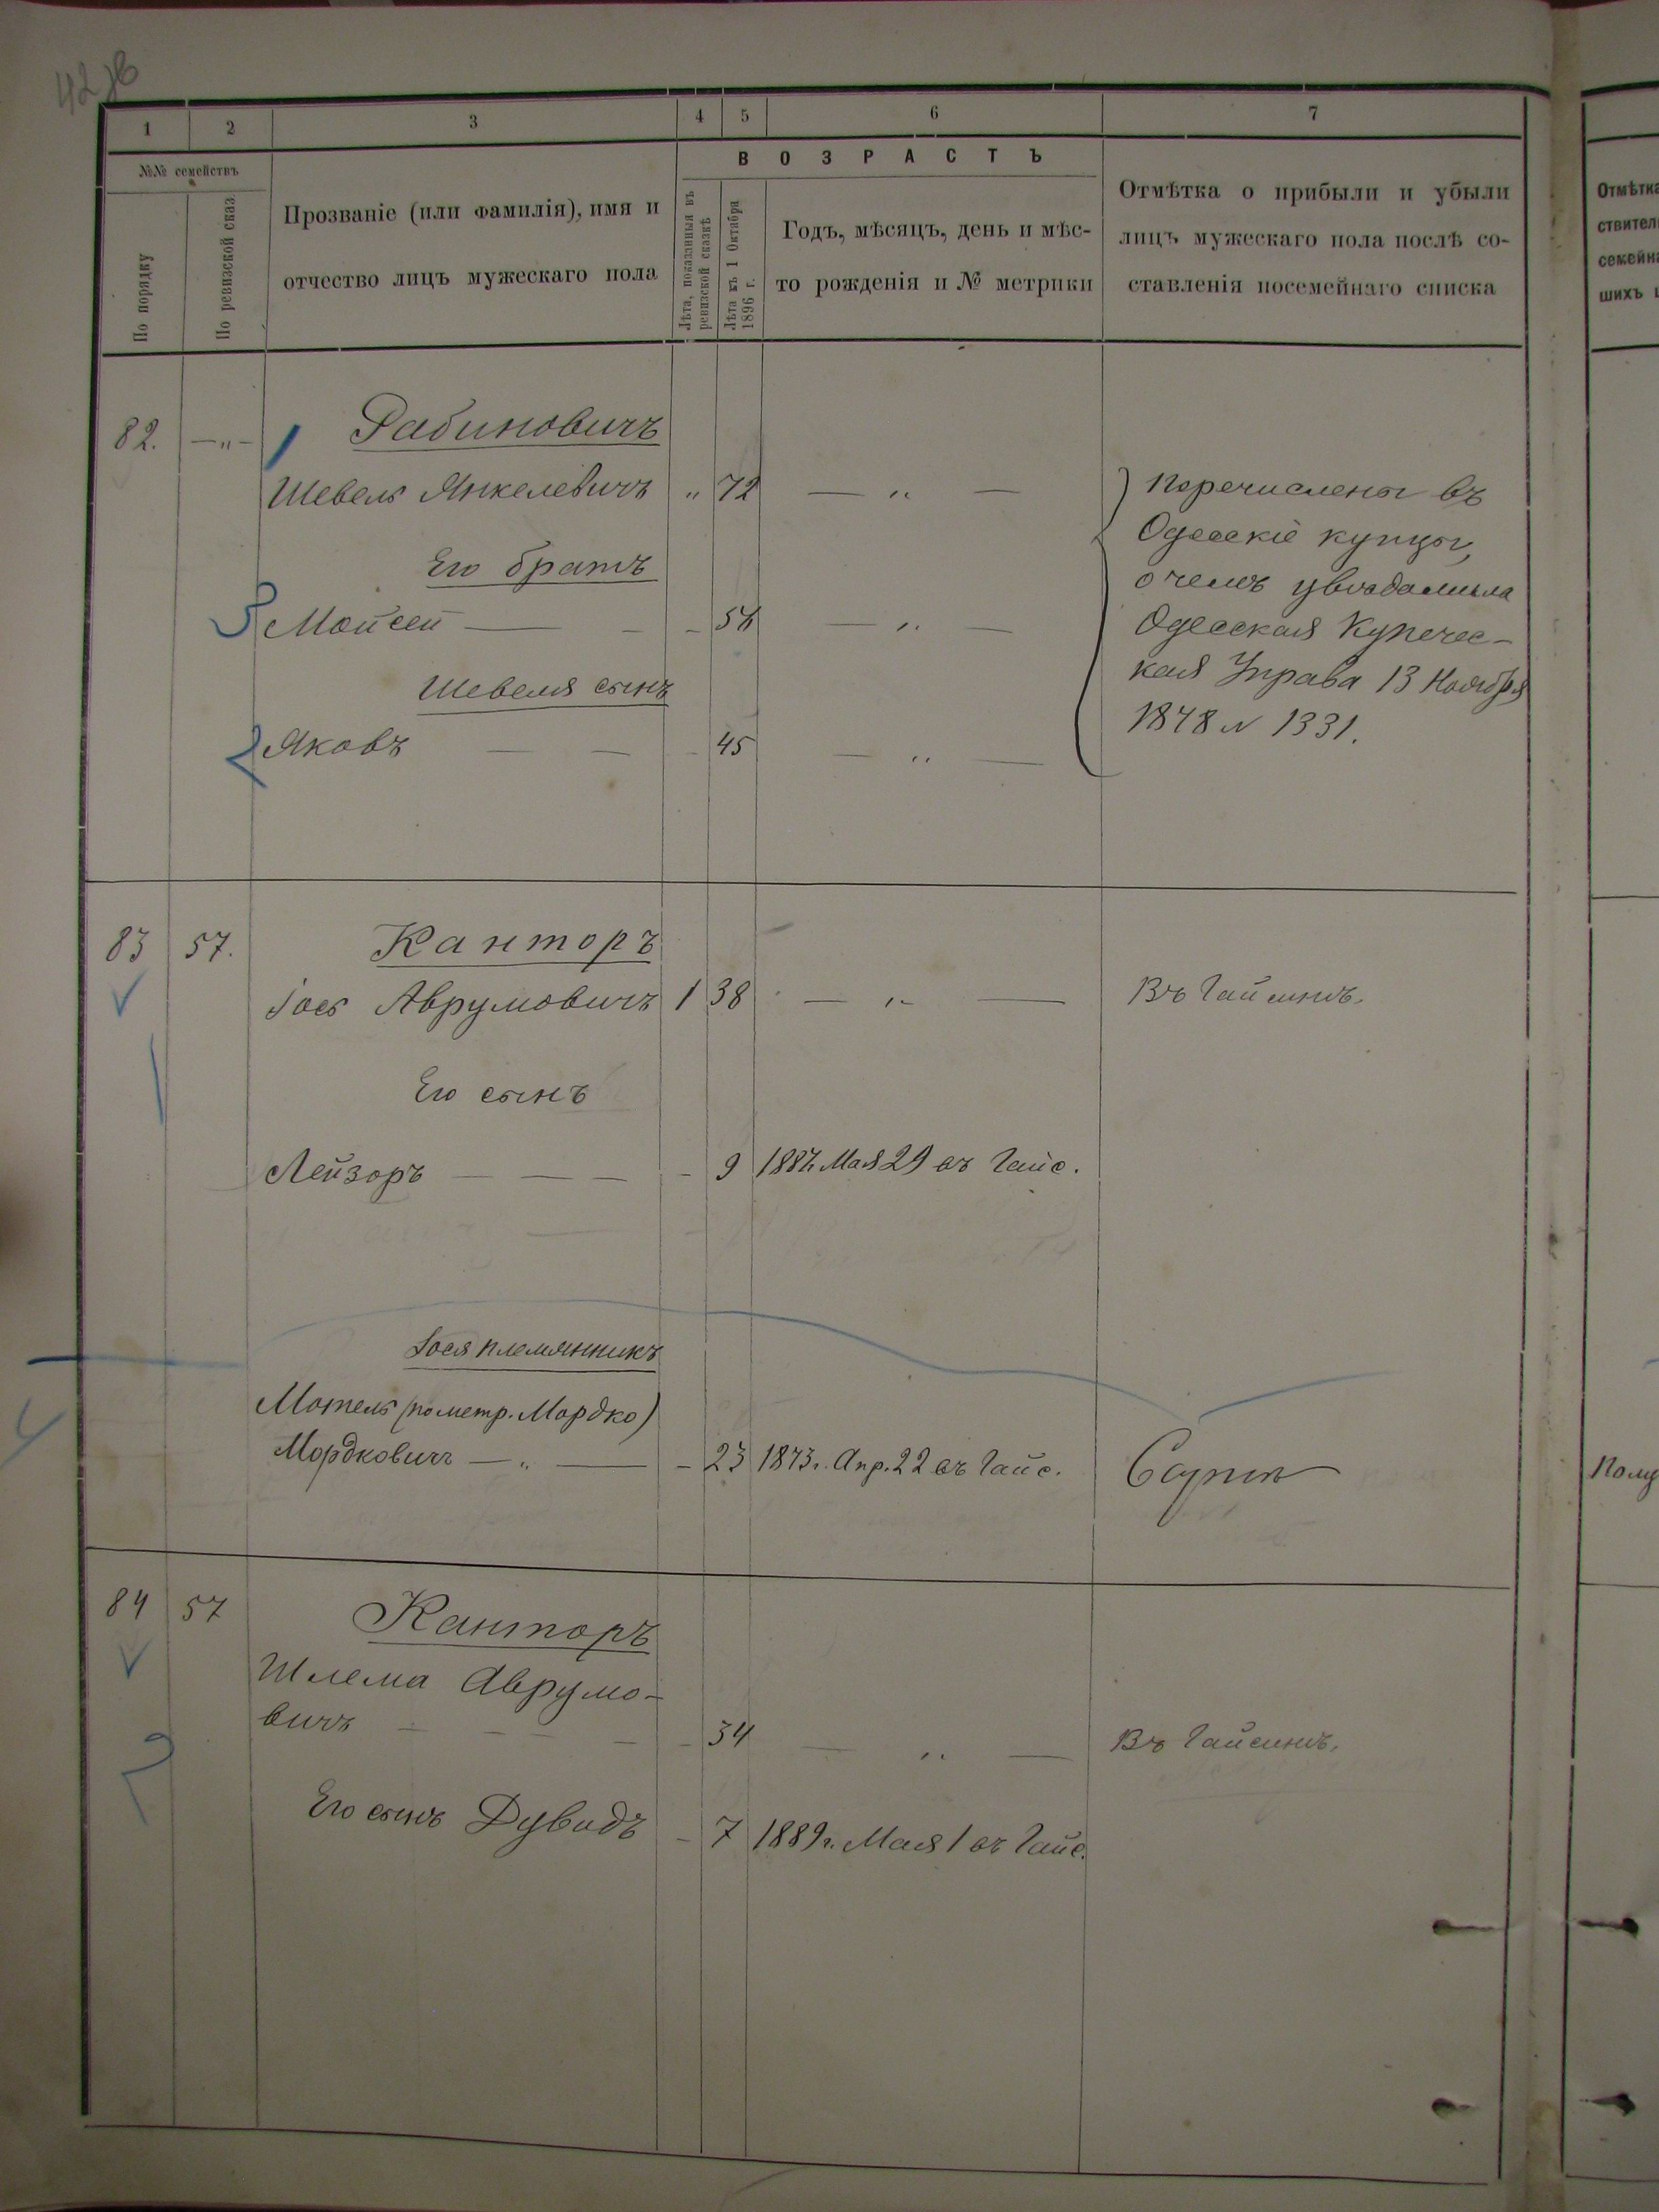 1 2 3 4 5 6 7
№№ семействъ
По порядку
По ревизской сказ.
Прозваніе (или фамилія), имя и
отчество лицъ мужескаго пола
ВОЗРАСТЪ
Лѣта, показанныя въ
ревизской сказкѣ
Лѣта къ 1 Октября
1896 г.
Годъ, мѣсяцъ, день и мѣс-
то рожденія и № метрики
Отмѣтка о прибыли и убыли
лицъ мужескаго пола послѣ со-
ставленія посемейнаго списка
82. — „ — 1 Рабиновичъ
Шевель Янкелевичъ „ 72 — „ —
Его братъ
3 Мойсей — — 58 — „ —
Шевеля сынъ
2 Яковъ — — 45 — „ —
Перечислены въ
Одесскіе купцы,
о чемъ увѣдомила
Одесская Купечес-
кая Управа 13 Ноября
1878 № 1331.
83 57. Канторъ
Іось Аврумовичъ 1 38 — „ — Въ Гайсинѣ.
Его сынъ
Лейзоръ — — — 9 1887. Мая 29 въ Гайс.
Іося племянникъ
Мотель (по метр. Мордко)
Мордковичъ — „ — 23 1873г. Апр. 22 въ Гайс.
84 57 Канторъ
Шлема Аврумо-
вичъ — — — 34 — „ — Въ Гайсинѣ.
Его сынъ Дувидъ — 7 1889г. Мая 1 въ Гайс.
Отмѣтка
ствител
семейн
шихъ
Полу